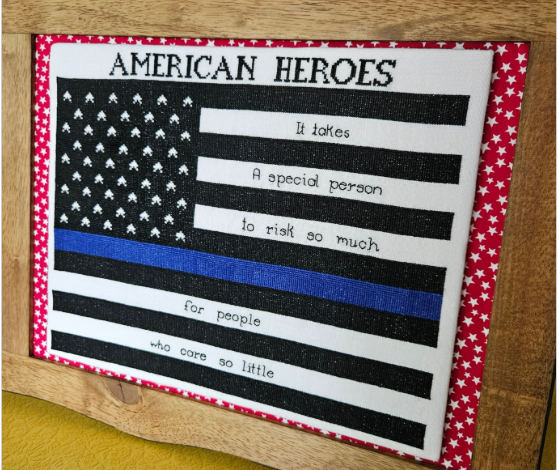 AMERICAN HEROES
It takes
A special person
to risk so much
for people
who care so little